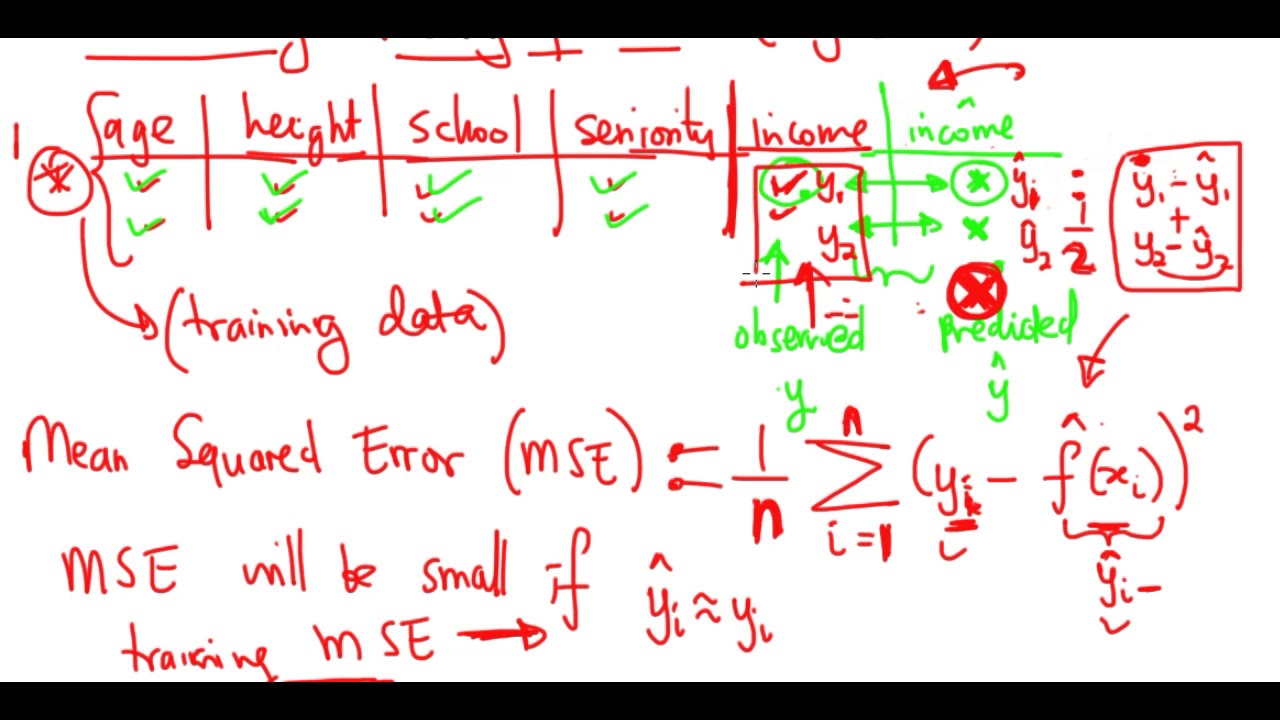 age height school seniority Income incomê
y₁ ŷ₁ : y₁ - ŷ₁
+
y₂ ŷ₂ 1/2 y₂ - ŷ₂
(training data) observed predicted
y ŷ
Mean Squared Error (MSE) : = 1/n Σ i=1 n (yᵢ - f̂(xᵢ))²
MSE will be small if ŷᵢ ≈ yᵢ
ŷᵢ -
training MSE →